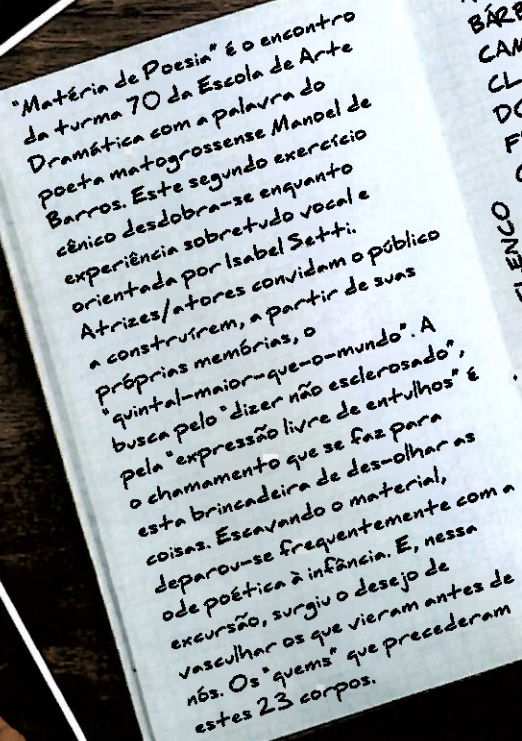 "Matéria de Poesia" é o encontro
da turma 70 da Escola de Arte
Dramática com a palavra do
poeta matogrossense Manoel de
Barros. Este segundo exercício
cênico desdobra-se enquanto
experiência sobretudo vocal e
orientada por Isabel Setti.
Atrizes/atores convidam o público
a construírem, a partir de suas
próprias memórias, o
"quintal-maior-que-o-mundo". A
busca pelo "dizer não esclerosado",
pela "expressão livre de entulhos" é
o chamamento que se faz para
esta brincadeira de des-olhar as
coisas. Escavando o material,
deparou-se frequentemente com a
ode poética à infância. E, nessa
excursão, surgiu o desejo de
vasculhar os que vieram antes de
nós. Os "quems" que precederam
estes 23 corpos.